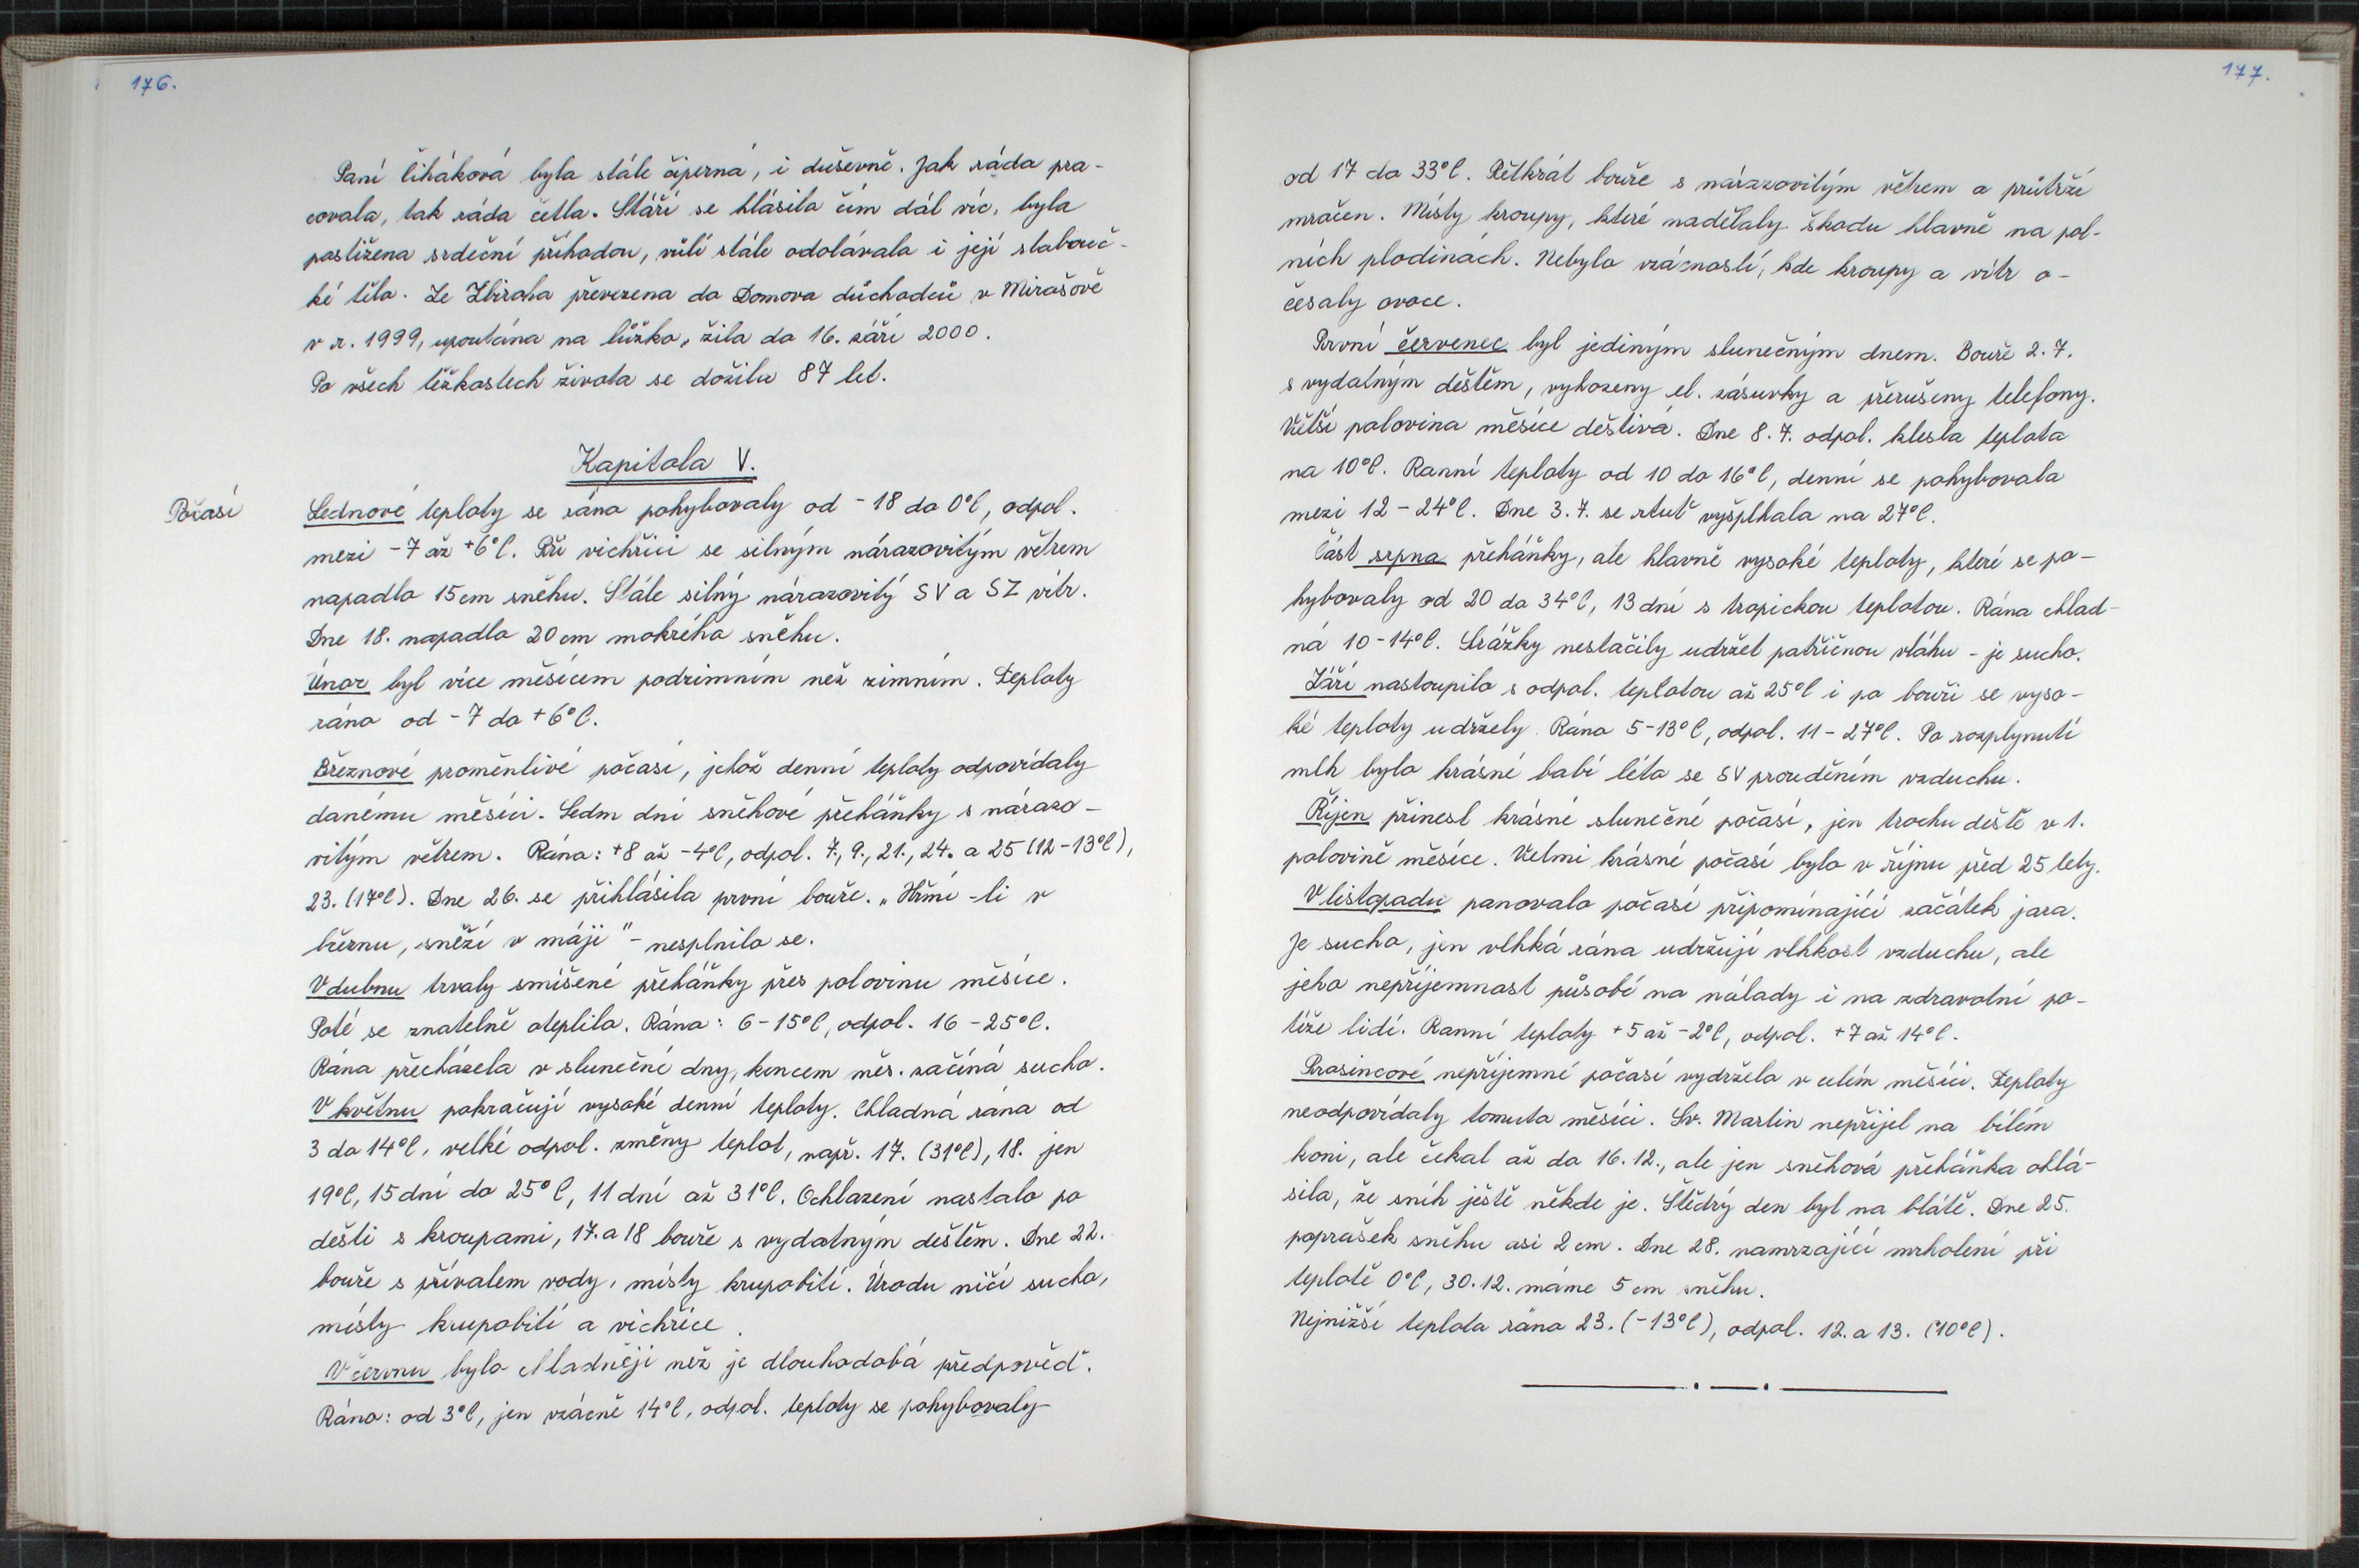 176.
Paní Čiháková byla stále čiperná, i duševně. Jak ráda pra-
covala, tak ráda četla. Stáří se hlásilo čím dál víc, byla
postižena srdeční příhodou, vůlí stále odolávala i její slabouč-
ké tělo. Ze Zbiroha převezena do Domova důchodců v Mirošově
v r. 1999, upoutána na lůžko, žila do 16. září 2000.
Po všech těžkostech života se dožila 87 let.
Kapitola V.
Počasí
Lednové teploty se ráno pohybovaly od -18 do 0°C, odpol.
mezi -7 až +6°C. Při vichřici se silným nárazovitým větrem
napadlo 15 cm sněhu. Stále silný nárazovitý SV a SZ vítr.
Dne 18. napadlo 20 cm mokrého sněhu.
Únor byl více měsícem podzimním než zimním. Teploty
ráno od -7 do +6°C.
Březnové proměnlivé počasí, jehož denní teploty odpovídaly
danému měsíci. Sedm dní sněhové přeháňky s nárazo-
vitým větrem. Rána: +8 až -4°C, odpol. 7., 9., 21., 24. a 25 (12-13°C),
23. (17°C). Dne 26. se přihlásila první bouře. „Hřmí-li v
březnu, sněží v máji" - nesplnilo se.
V dubnu trvaly smíšené přeháňky přes polovinu měsíce.
Poté se znatelně oteplilo. Rána: 6-15°C, odpol. 16-25°C.
Rána přecházela v slunečné dny, koncem měs. začíná sucho.
V květnu pokračují vysoké denní teploty. Chladná rána od
3 do 14°C, velké odpol. změny teplot, např. 17. (31°C), 18. jen
19°C, 15 dní do 25°C, 11 dní až 31°C. Ochlazení nastalo po
dešti s kroupami, 17. a 18 bouře s vydatným deštěm. Dne 22.
bouře s přívalem vody, místy krupobití. Úrodu ničí sucho,
místy krupobití a vichřice.
V červnu bylo chladněji než je dlouhodobá předpověď.
Ráno: od 3°C, jen vzácně 14°C, odpol. teploty se pohybovaly
177.
od 17 do 33°C. Pětkrát bouře s nárazovitým větrem a průtrží
mračen. Místy kroupy, které nadělaly škodu hlavně na pol-
ních plodinách. Nebylo vzácností, kde kroupy a vítr o-
česaly ovoce.
První červenec byl jediným slunečným dnem. Bouře 2. 7.
s vydatným deštěm, vyhozeny el. zásuvky a přerušeny telefony.
Větší polovina měsíce deštivá. Dne 8. 7. odpol. klesla teplota
na 10°C. Ranní teploty od 10 do 16°C, denní se pohybovala
mezi 12-24°C. Dne 3. 7. se rtuť vyšplhala na 27°C.
Část srpna přeháňky, ale hlavně vysoké teploty, které se po-
hybovaly od 20 do 34°C, 13 dní s tropickou teplotou. Rána chlad-
ná 10-14°C. Srážky nestačily udržet patřičnou vláhu - je sucho.
Září nastoupilo s odpol. teplotou až 25°C i po bouři se vyso-
ké teploty udržely. Ráno 5-13°C, odpol. 11-27°C. Po rozplynutí
mlh bylo krásné babí léto se SV prouděním vzduchu.
Říjen přinesl krásné slunečné počasí, jen trochu deště v 1.
polovině měsíce. Velmi krásné počasí bylo v říjnu před 25 lety.
V listopadu panovalo počasí připomínající začátek jara.
Je sucho, jen vlhká rána udržují vlhkost vzduchu, ale
jeho nepříjemnost působí na nálady i na zdravotní po-
tíže lidí. Ranní teploty +5 až -2°C, odpol. +7 až 14°C.
Prosincové nepříjemné počasí vydrželo v celém měsíci. Teploty
neodpovídaly tomuto měsíci. Sv. Martin nepřijel na bílém
koni, ale čekal až do 16. 12., ale jen sněhová přeháňka ohlá-
sila, že sníh ještě někde je. Štědrý den byl na blátě. Dne 25.
poprašek sněhu asi 2 cm. Dne 28. namrzající mrholení při
teplotě 0°C, 30. 12. máme 5 cm sněhu.
Nejnižší teplota ráno 23. (-13°C), odpol. 12. a 13. (10°C).